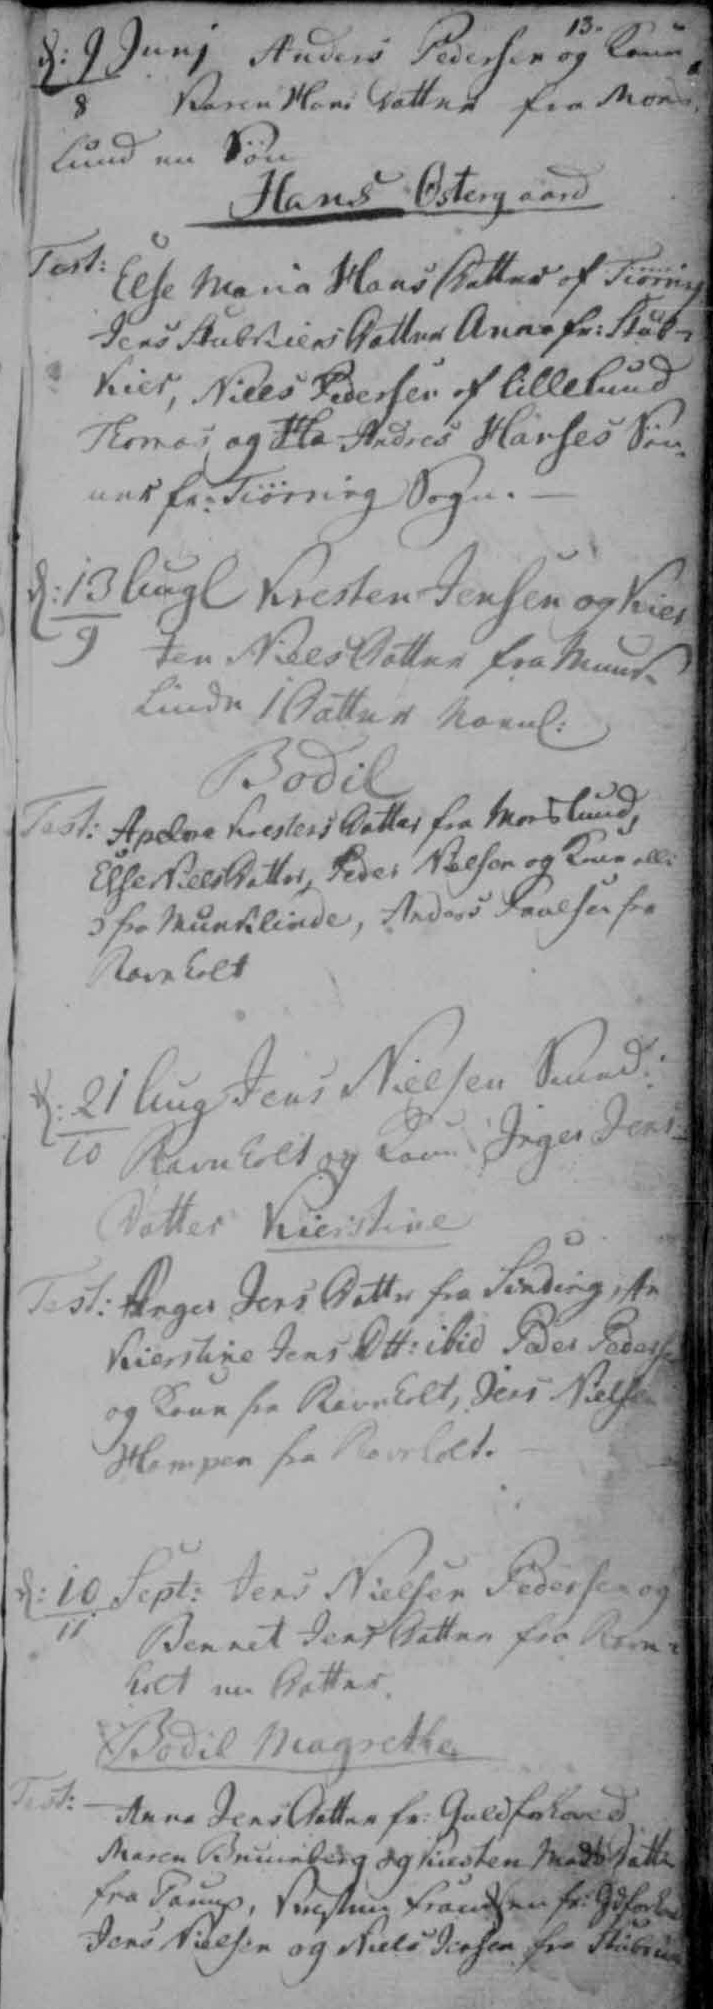 13.
d: 9 Junj Anders Pedersen og Konn
8 Karen Hans Datter fra Mors
Lund en Søn
Hans Østergaard
Test: Else Maria Hans Datter af Tiørring
Jens Stubkiers Datter Anna fr: Stub-
kier, Niels Pedersen af Lillelund
Thomas og Andres Hanses Søn-
ner fra Tiørring Sogn. —
d: 13 Aug Kresten Jensen og Kier
9 sten Niels Datter fra Munk-
Linde 1 Datter navnl:
Bodil
Test: Kresters Datter fra Morslund,
Else Niels Datter, Peder Nielsen og Konn all:
3 fra Munklinde, Anders Poulsen fra
Ravnholt
d: 21 Aug Jens Nielsen
10 Ravnholt og Konn Inger Jens
Datter Kierstine
Test: Inger Jens Datter fra Sinding, An
Kierstine Jens Dtt: ibid Peder Peders
og Konn fra Ravnholt, Jens Nielsen
Hampen fra Ravnholt. —
d: 10 Sept: Jens Nielsen Pedersen og
11 Bennet Jens Datter fra Ravn-
holt en Datter
Bodil Magrethe
Test: — Anna Jens Datter fr: Guldforhoved
Maren Bruunberg og Kiersten Mads Datter
fra Tarup,
Jens Nielsen og Niels Jensen fra